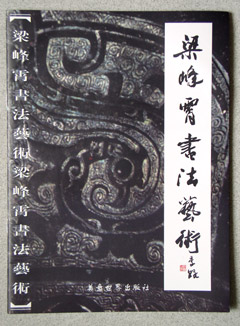 梁峰霄書法藝術
李鐸
【梁峰霄書法藝術梁峰霄書法藝術】
世界出版社